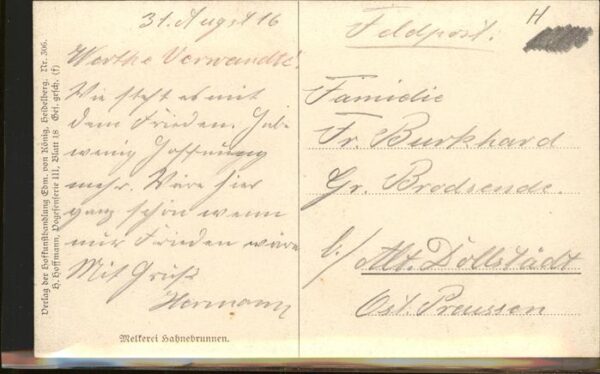 31. August 16
Werthe Verwandte!
Wie steht es mit
dem Frieden. Habe
wenig Hoffnung
mehr. Wäre hier
ganz schön wenn
nur Frieden wäre
Mit Gruß
Hermann
Melkerei Hahnebrunnen.
Verlag der Hofkunsthandlung Edm. von König, Heidelberg. Nr. 306.
H. Hoffmann, Vogesenserie III, Blatt 18 Ges. gesch. (f)
H
Feldpost.
Familie
Fr. Burkhard
Gr. Brodsende.
b/ Alt. Dollstädt
Ost. Preussen